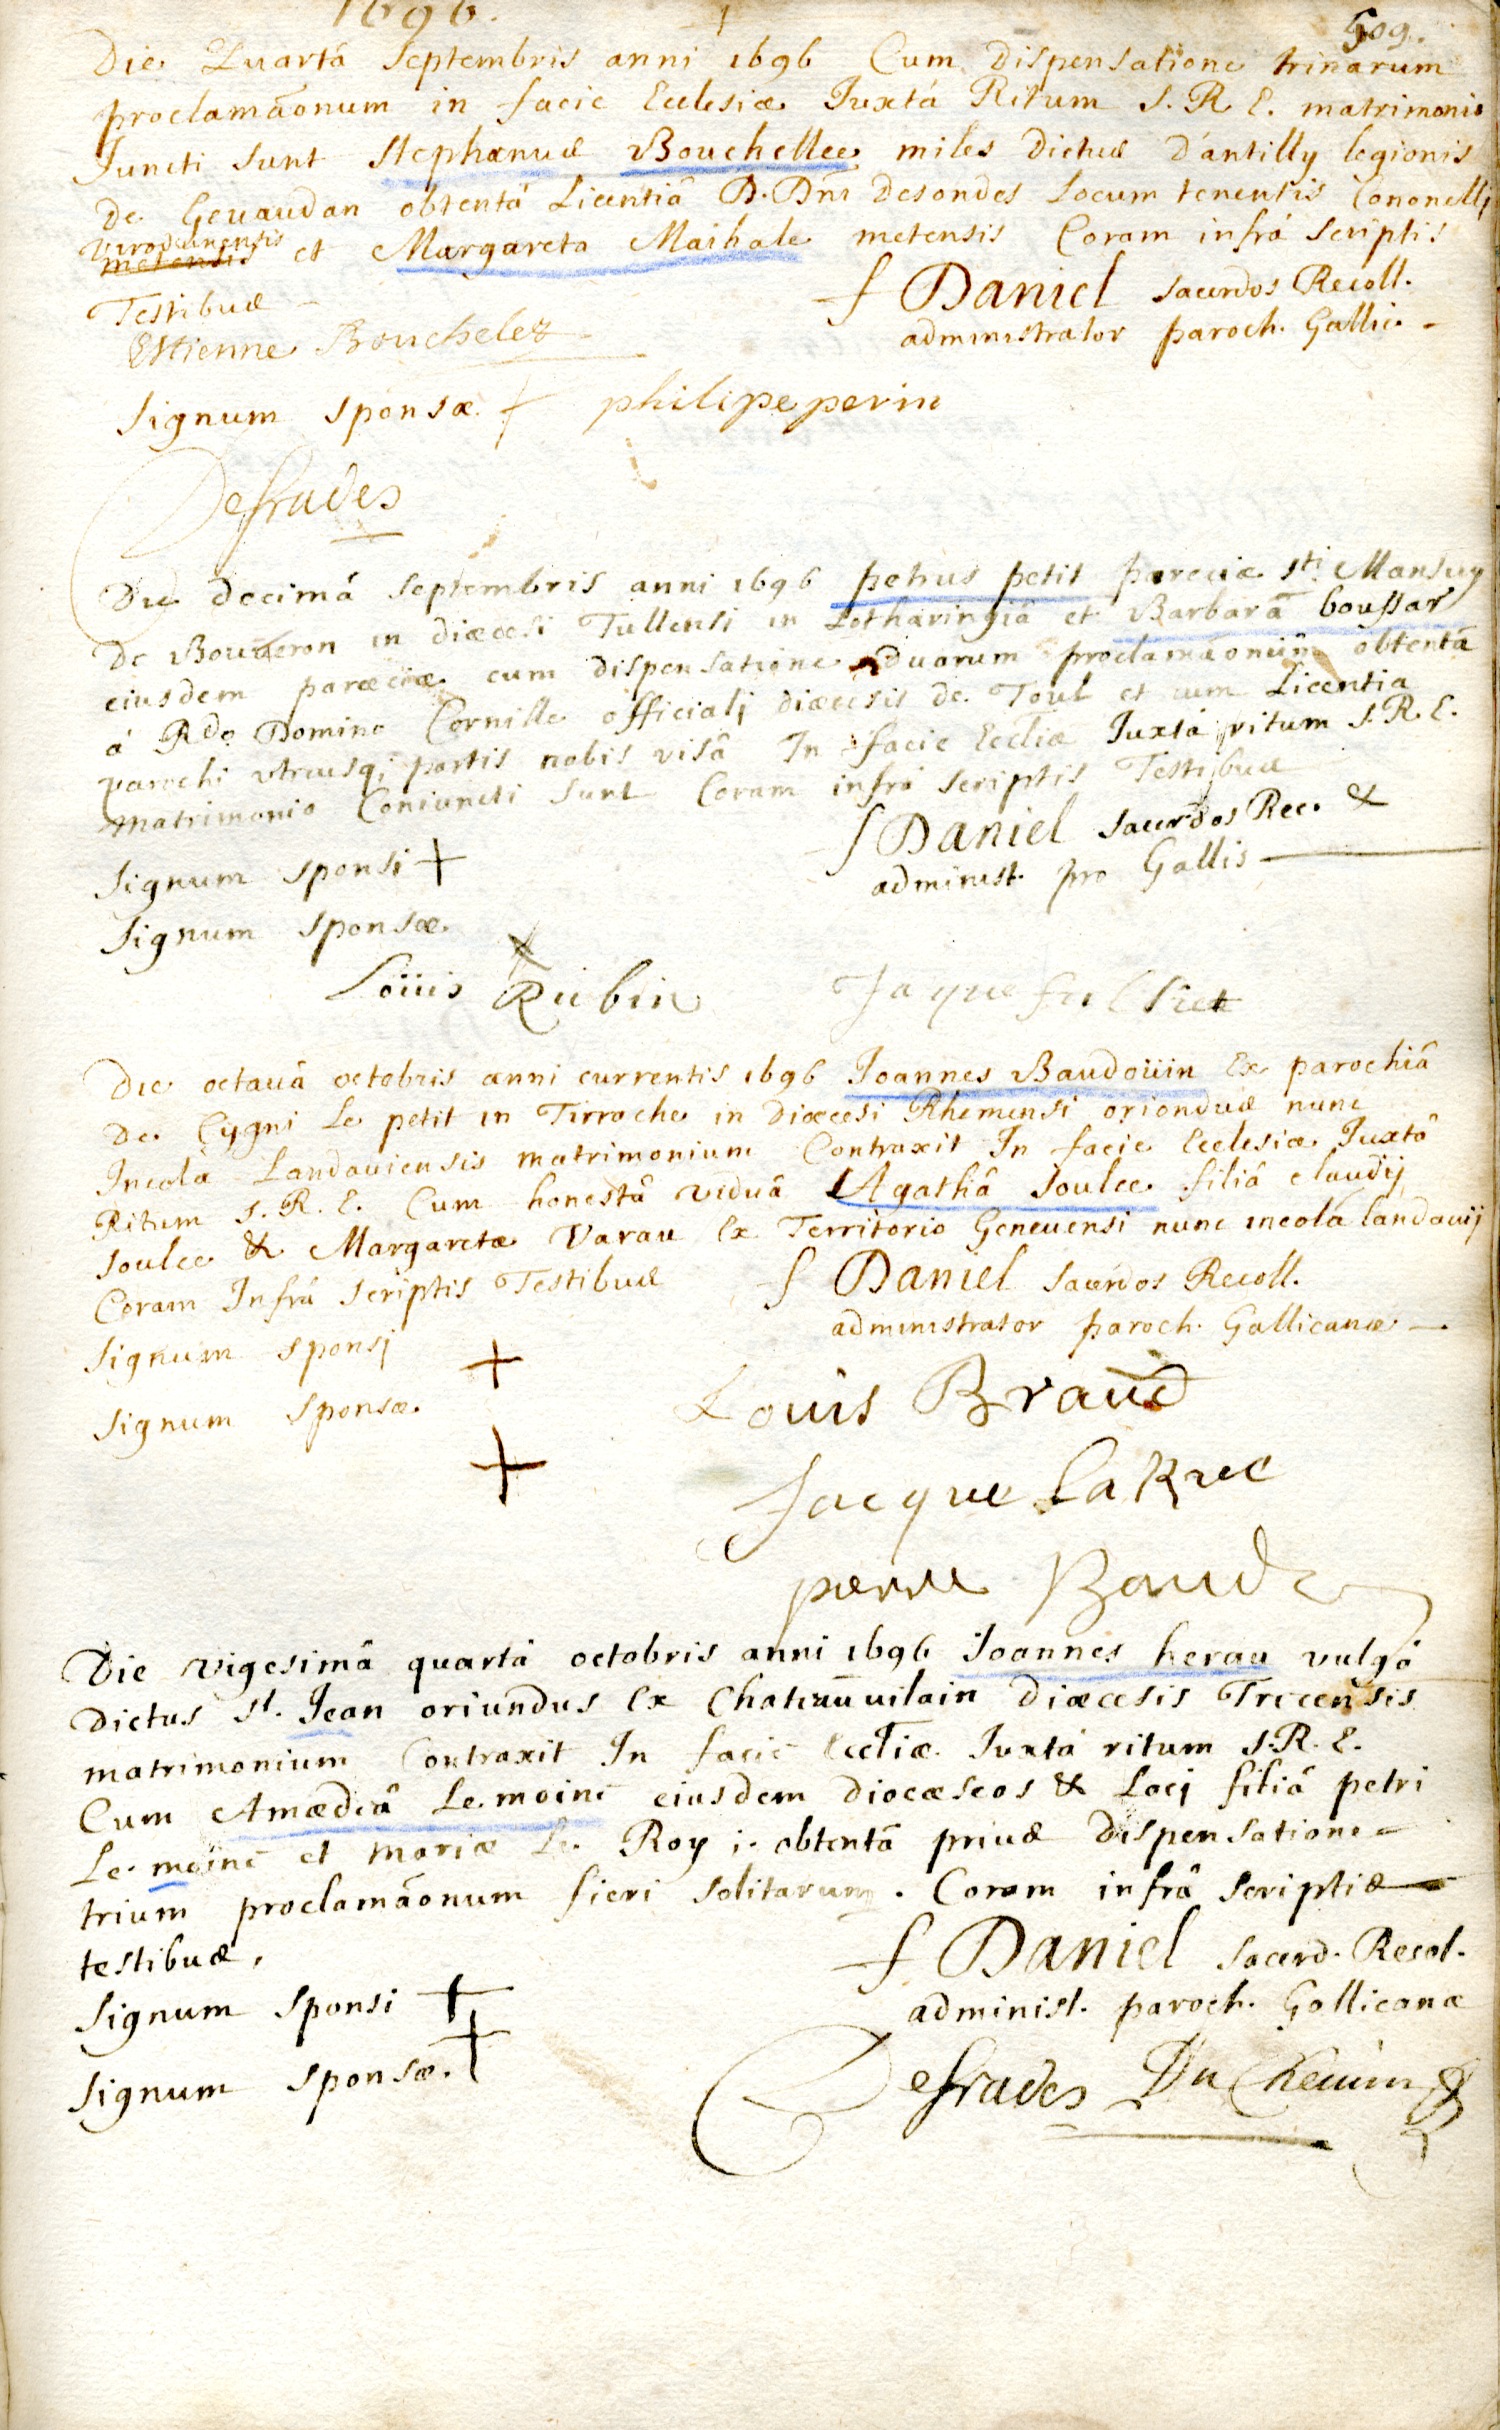 1696.
509.
Die Quartâ Septembris anni 1696 Cum Dispensatione trinarum
proclamãonum in facie Ecclesiæ Juxtá Ritum S. R. E. matrimonio
Juncti sunt Stephanus Bouchellee miles dictus D'antilly legionis
De Gevaudan obtentâ Licentiâ D. Dni Desondes Locum tenentis Cononellj
virodunensis
metensis et Margareta Maihale metensis Coram infrá scriptis
Testibus
f Daniel sacerdos Recoll.
administrator paroch. Gallic.
Estienne Bouchelez
Signum sponsæ + philipe perin
Defrades
Die decimâ Septembris anni 1696 petrus petit pareciæ sti Mansuy
De Bouueron in diœcesi Tullensi in Lotharingiâ et Barbarâ boussar
eiusdem parœciæ cum dispensatione duarum proclamãonum obtentâ
á Rdo Domino Cornille officialj diœcesis de Toul et cum Licentia
parochi utriusqȝ partis nobis visâ In facie Eccliæ Juxtá ritum S. R. E.
matrimonio Coniuncti sunt Coram infrá scriptis Testibus
f Daniel sacerdos Rec. &
administ. pro Gallis
Signum sponsi +
Signum sponsæ. +
Loüis Rubin
Jaque
Die octauâ octobris anni currentis 1696 Joannes Baudoüin Ex parochiâ
De Cygni Le petit in Tirroche in diœcesi Rhemensi oriondus nunc
Incola Landauiensis matrimonium Contraxit In facie Ecclesiæ Juxtâ
Ritum S. R. E. Cum honestâ viduâ Agathâ soulee filiâ claudij
soulee & Margaretæ Varau Ex Territorio Geneuensi nunc incolá landauij
Coram Infrá scriptis Testibus
f Daniel sacerdos Recoll.
administrator paroch. Gallicanæ
Signum sponsj +
Signum sponsæ. +
Louis Braud
Jacque LaRue
pierre Baude
Die vigesimâ quartâ octobris anni 1696 Joannes herau vulgò
dictus st. Jean oriundus Ex Chateauuilain diœcesis Trecensis
matrimonium Contraxit In facie Eccliæ Juxtá ritum S. R. E.
Cum Amædeâ Le moine eiusdem dioceseos & Locj filiâ petri
Le moine et mariæ Le Roy ; obtentâ prius dispensatione
trium proclamãonum fieri solitarum . Coram infrâ scriptis
testibus,
f Daniel sacerd. Recol.
administ. paroch. Gallicanæ
Signum sponsi +
Signum sponsæ. +
Defrades Du Chemin